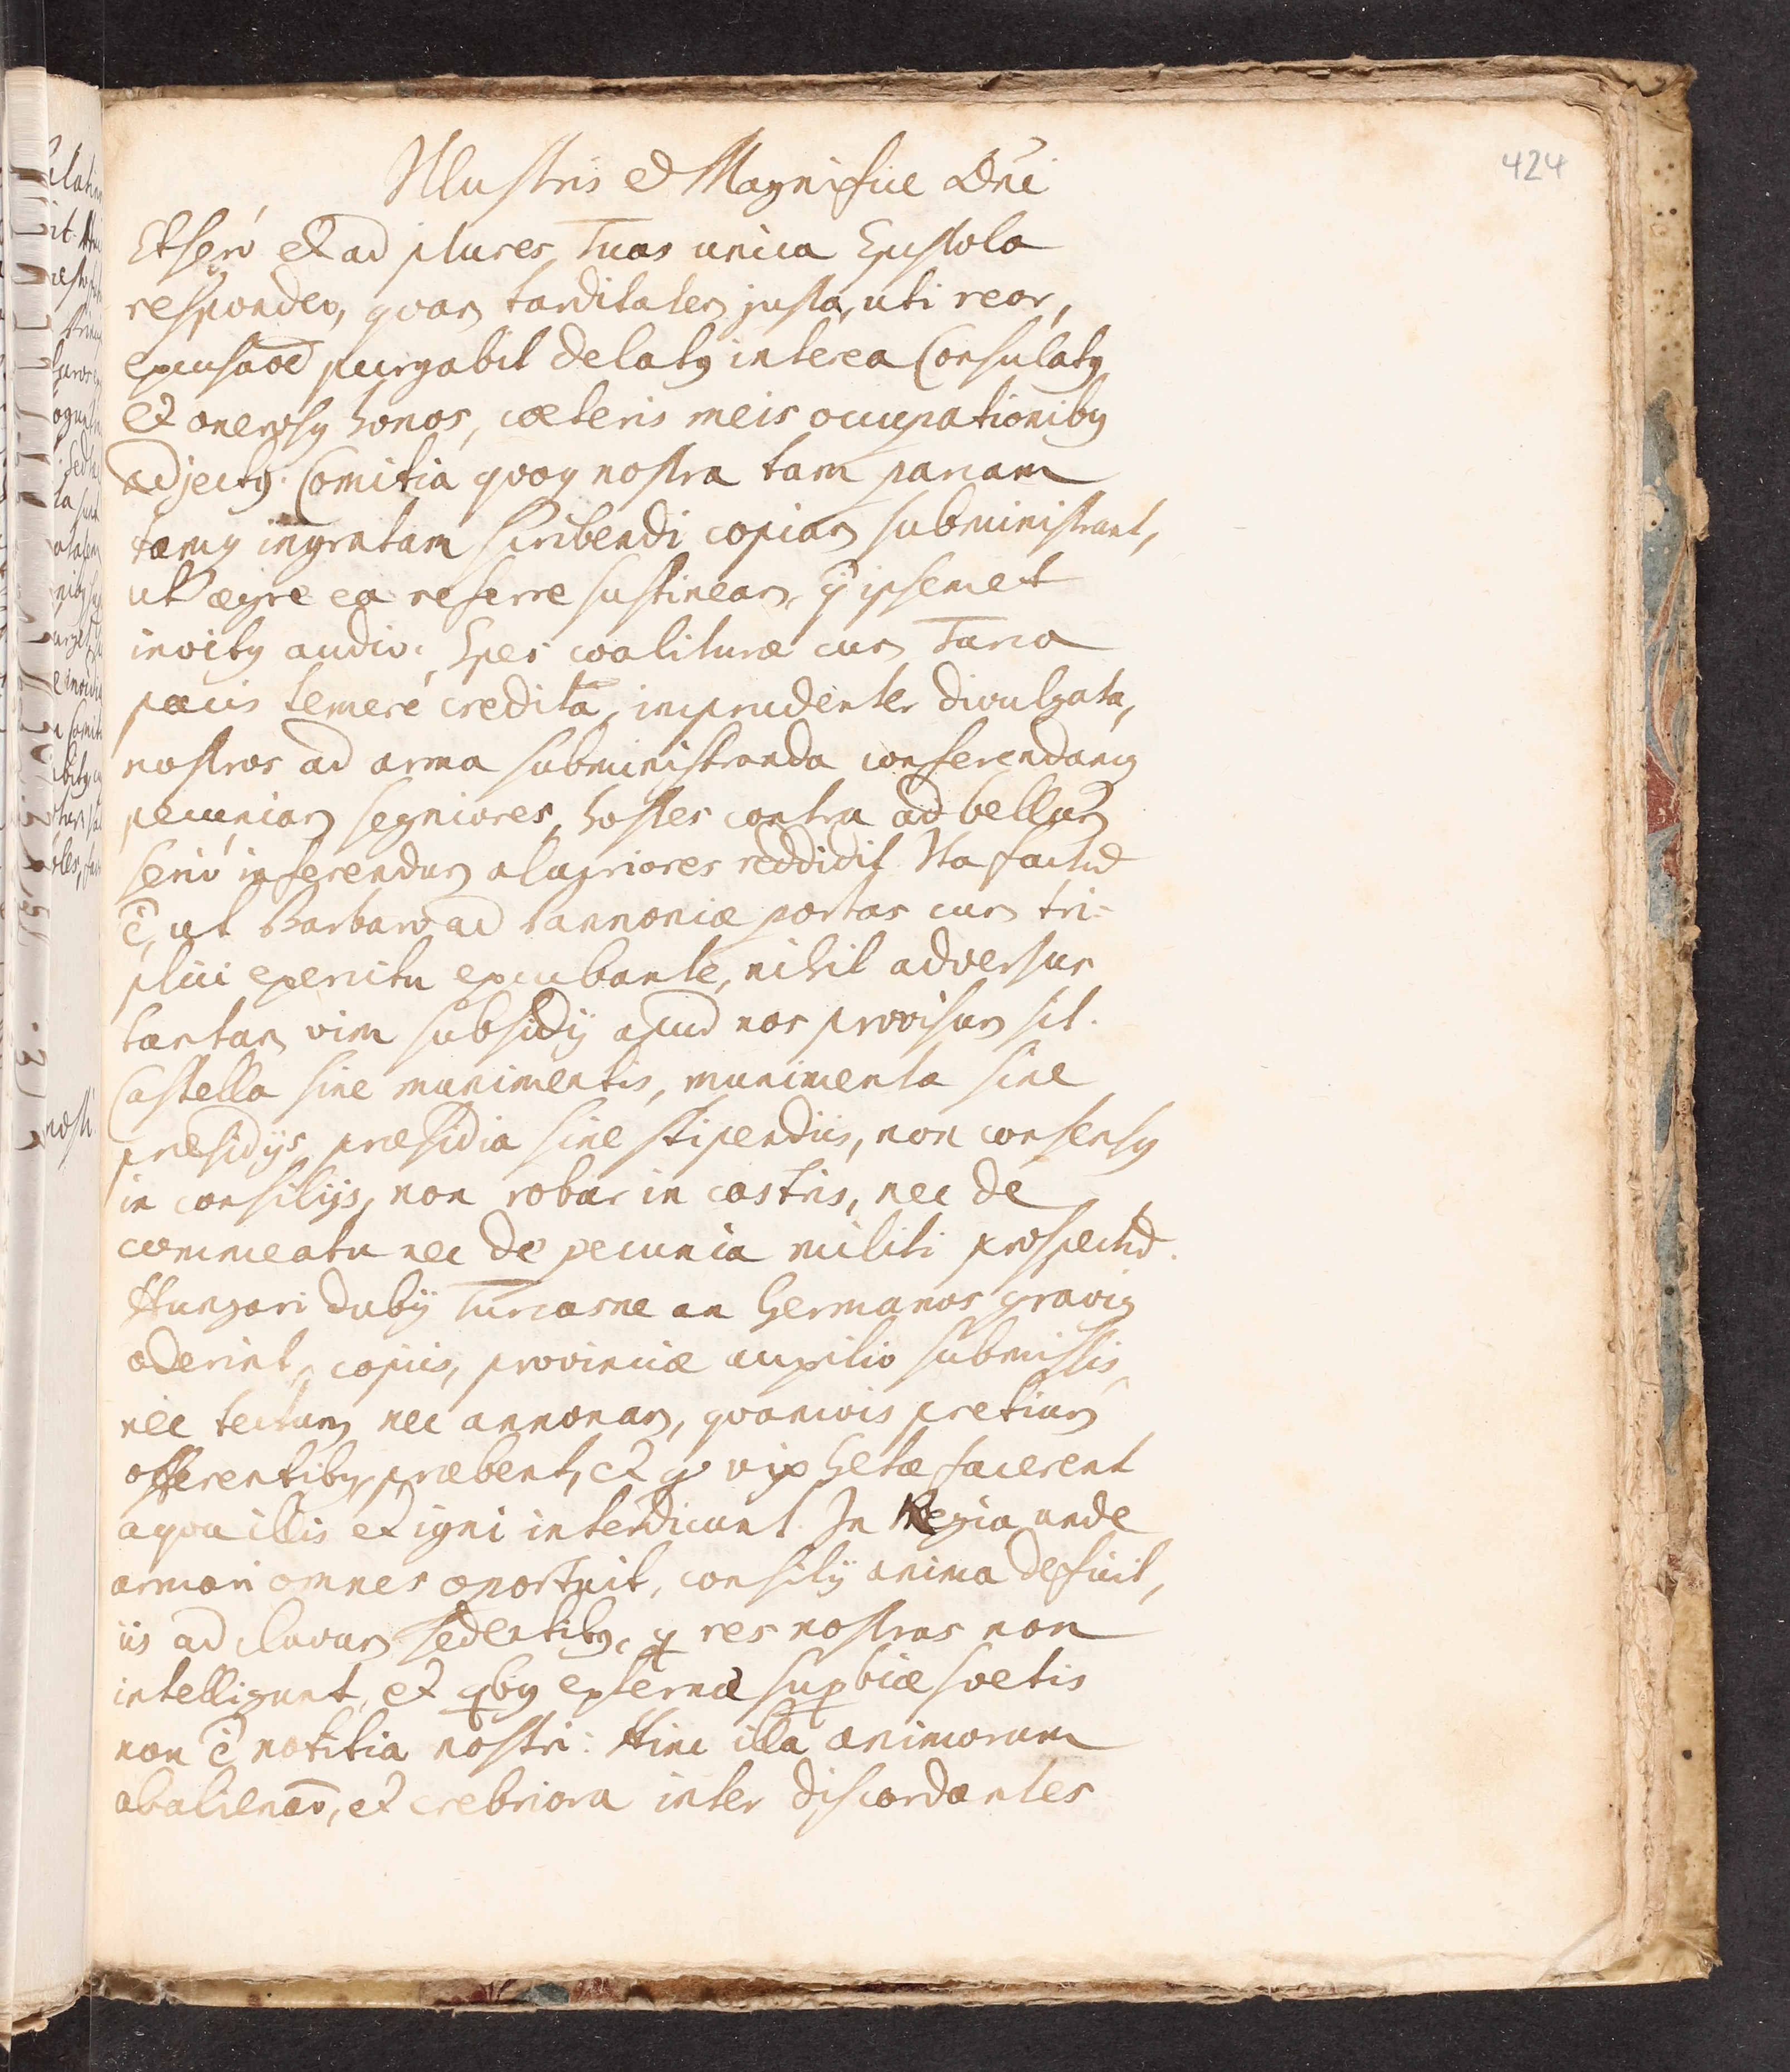 424
Illustris et Magnifice Dn̄e
Et serò et ad plures Tuas unica Epistola
respondeo, quam tarditatem justa, uti reor,
excusaōe purgabit delatꝯ interea Consulatꝯ
et onerosꝯ honos, cæteris meis occupationibꝯ
adjectꝯ. Comitia quoqꝫ nostra tam parcam
tamqꝫ ingratam scribendi copiam subministrant,
ut ægre ea referre sustineam, q̄ ipsemet
invitꝯ audio. Spes coalituræ cum Turca
pacis temerè credita, imprudenter divulgata,
nostros ad arma subministranda conferendamqꝫ
pecuniam segniores, hostes contra ad bellum
seriò inferendum alacriores reddidit. Ita factū
ē, ut Barbaro ad Pannoniæ portas cum tri-
plici exercitu excubante, nihil adversus
tantam vim subsidij apud nos provisum sit.
Castella sine munimentis, munimenta sine
præsidijs, præsidia sine stipendiis, non consensꝯ
in consilijs, non robur in castris, nec de
commeatu nec de pecunia militi prospectū.
Hungari dubij Turcasne an Germanos graviꝯ
oderint, copiis, provinciæ auxilio submissis,
nec tectum nec annonam, quamvis pretium
offerentibꝯ, præbent, et qꝫ vix Getæ facerent
aqua illis et igni interdicunt. In Regia unde
armari omnes oportuit, consilij anima deficit,
iis ad clavum sedentibꝯ, q res nostras non
intelligunt, et qbꝯ externæ supbiæ svetis
non ē notitia nostri: Hinc illa animorum
abalienaō, et crebriora inter discordantes